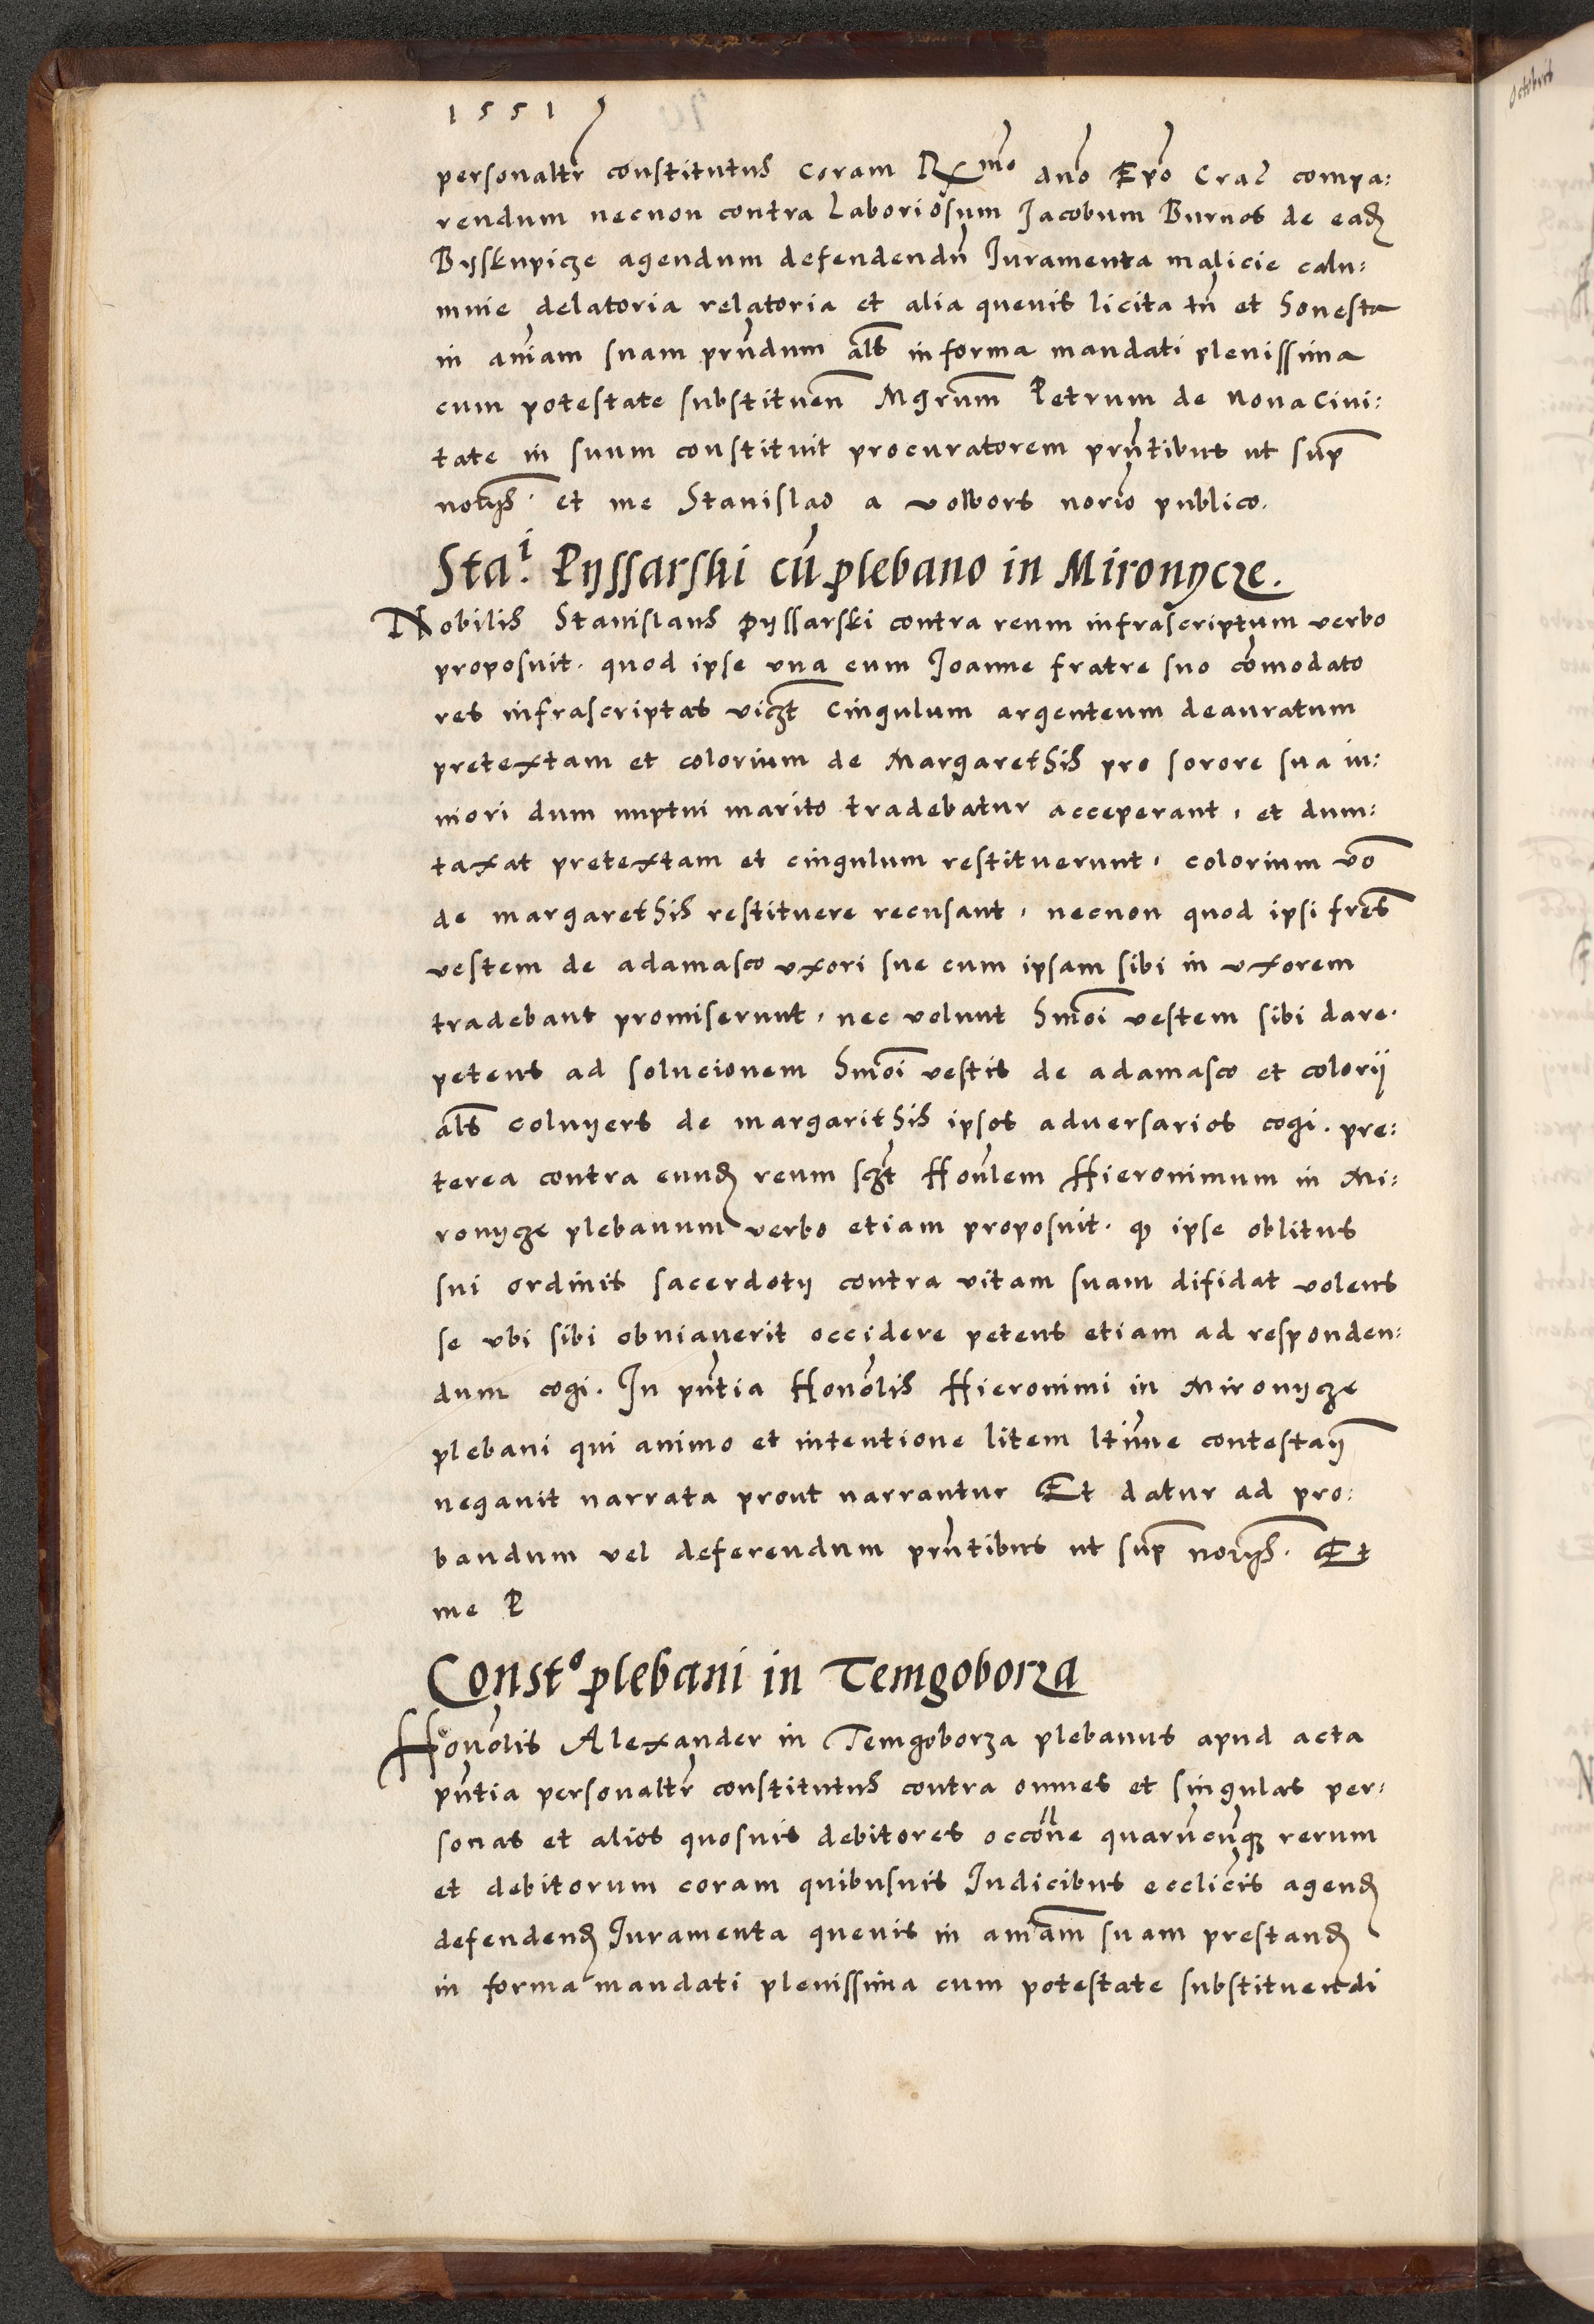 1551
personaltr constitutus coram Rmo dno Epo Crac compa:
rendum necnon contra Laboriosum Jacobum Burnos de eadz
Byskupicze agendum defendendu Juramenta malicie calu:
mnie delatoria relatoria et alia quevis licita tn et honesta
in aniam suam prndum als in forma mandati plenissima
cum potestate substituen Mgrum Petrum de Nova Civi:
tate in suum constituit procuratorem prntibus ut sup
notys. et me Stanislao a volbors norio publico.
Stai. Pyssarski cu plebano in Mironycze.
Nobilis Stanislaus Pyssarski contra reum infrascriptum verbo
proposuit. quod ipse una cum Joanne fratre suo comodato
res infrascriptas viczt Cingulum argenteum deauratum
pretextam et colorium de Margarethis pro sorore sua iu:
niori dum nuptui marito tradebatur acceperant, et dum:
taxat pretextam et cingulum restituerunt, colorium vo
de margarethis restituere recusant, necnon quod ipsi fres
vestem de adamasco uxori sue cum ipsam sibi in uxorem
tradebant promiserunt, nec volunt hmoi vestem sibi dare.
petens ad solucionem hmoi vestis de adamasco et colorij
als colnyers de margarithis ipsos adversarios cogi. pre:
terea contra eundz reum sczt Honlem Hieronimum in Mi:
ronycze plebanum verbo etiam proposuit. q ipse oblitus
sui ordinis sacerdoty contra vitam suam difidat volens
se ubi sibi obviaverit occidere petens etiam ad responden:
dum cogi. In pntia Honolis Hieronimi in Mironycze
plebani qui animo et intentione litem ltime contestay
negavit narrata prout narrantur Et datur ad pro:
bandum vel deferendum prntibus ut sup norys. Et
me P
Consto plebani in Temgoborza
Honolis Alexander in Temgoborza plebanus apud acta
pntia personaltr constitutus contra omnes et singulas per:
sonas et alios quosvis debitores occone quarucuqz rerum
et debitorum coram quibusvis Judicibus ecclicis agendz
defendendz Juramenta quevis in amam suam prestandz
in forma mandati plenissima cum potestate substituendi
Octobris